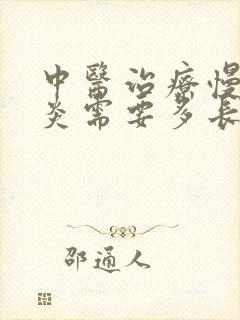 中醫治療慢
炎需要多長
邵通人